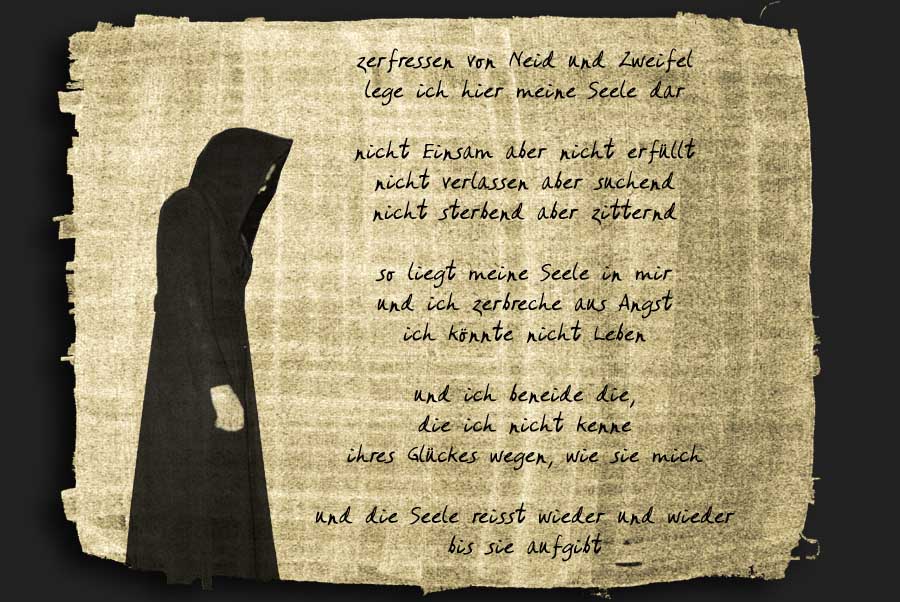 zerfressen von Neid und Zweifel
lege ich hier meine Seele dar
nicht Einsam aber nicht erfüllt
nicht verlassen aber suchend
nicht sterbend aber zitternd
so liegt meine Seele in mir
und ich zerbreche aus Angst
ich könnte nicht Leben
und ich beneide die,
die ich nicht kenne
ihres Glückes wegen, wie sie mich
und die Seele reisst wieder und wieder
bis sie aufgibt